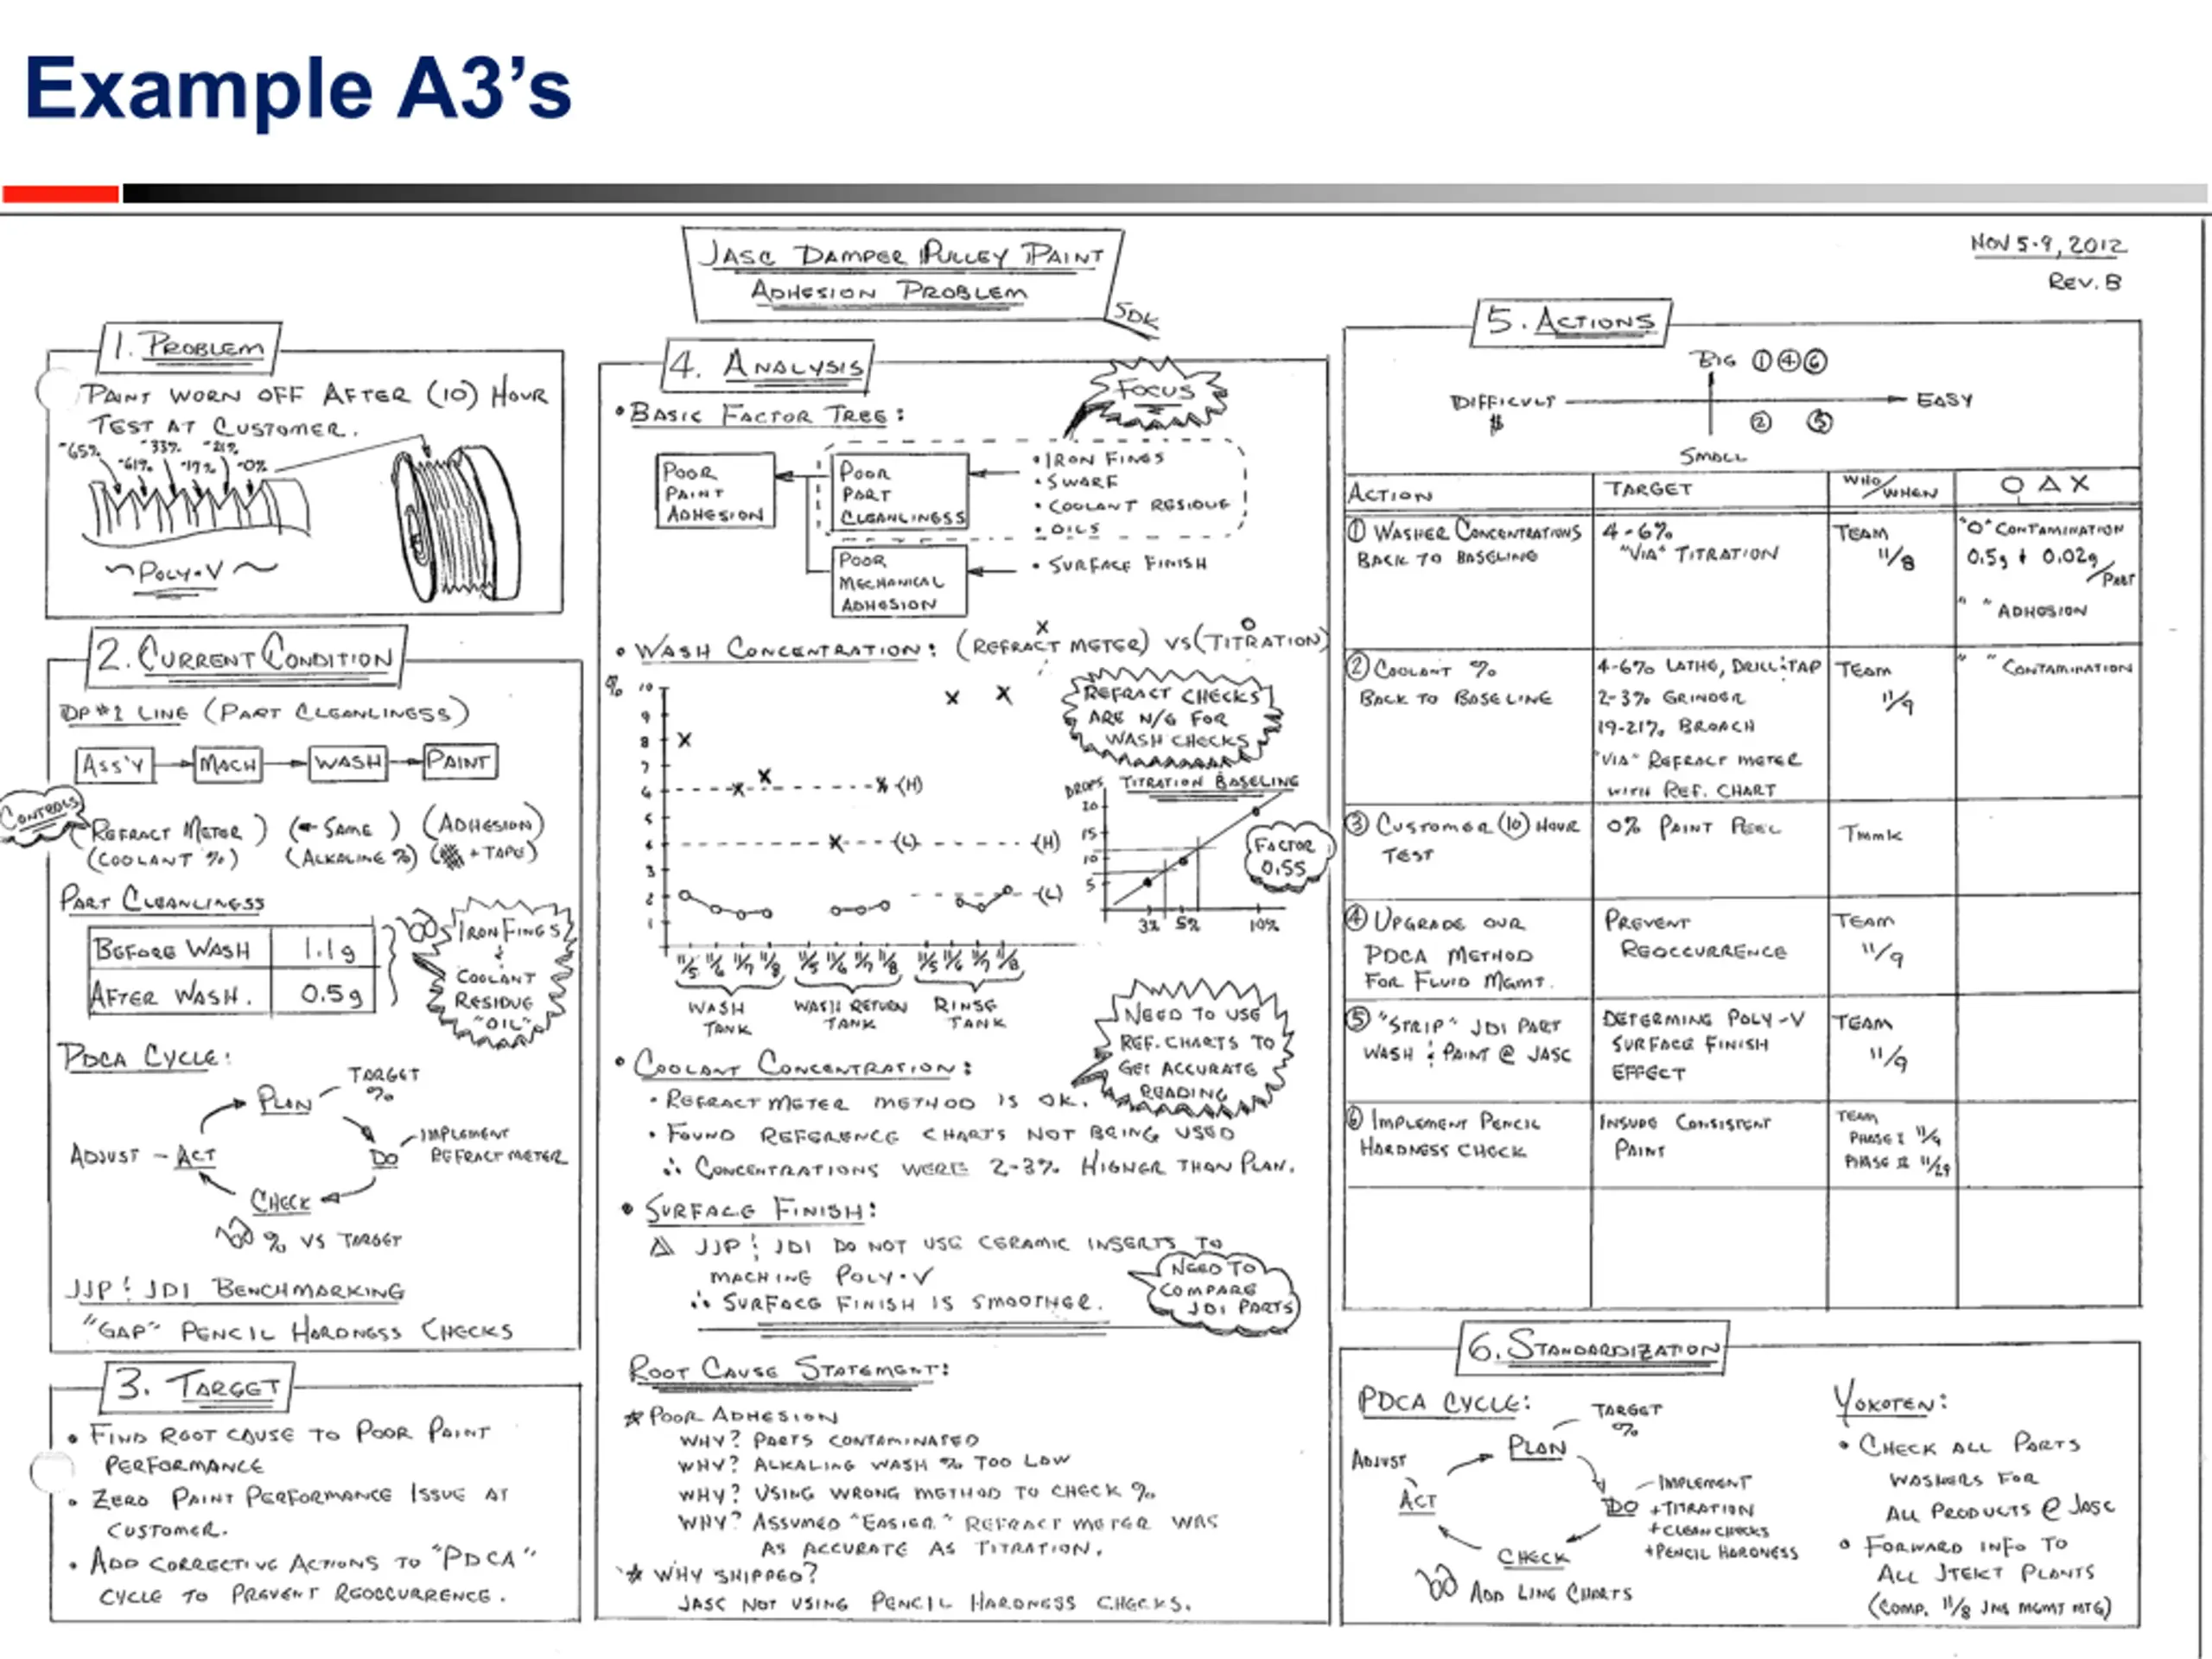 Example A3's
JASC DAMPER PULLEY PAINT
ADHESION PROBLEM
SDK
NOV 5-9, 2012
REV. B
1. PROBLEM
PAINT WORN OFF AFTER (10) HOUR
TEST AT CUSTOMER.
~65% ~61% ~33% ~17% ~21% ~0%
~POLY-V~
2. CURRENT CONDITION
DP#2 LINE (PART CLEANLINESS)
ASS'Y MACH WASH PAINT
CONTROLS
(REFRACT METER) (← SAME) (ADHESION)
(COOLANT %) (ALKALINE %) (+ TAPE)
PART CLEANLINESS
BEFORE WASH 1.1g
AFTER WASH. 0.5g
IRON FINES
&
COOLANT
RESIDUE
"OIL"
PDCA CYCLE:
PLAN - TARGET
%
DO - IMPLEMENT
REFRACT METER
ADJUST - ACT
CHECK
% VS TARGET
JJP & JDI BENCHMARKING
"GAP" PENCIL HARDNESS CHECKS
3. TARGET
• FIND ROOT CAUSE TO POOR PAINT
PERFORMANCE
• ZERO PAINT PERFORMANCE ISSUE AT
CUSTOMER.
• ADD CORRECTIVE ACTIONS TO "PDCA"
CYCLE TO PREVENT REOCCURRENCE.
4. ANALYSIS
FOCUS
• BASIC FACTOR TREE:
POOR
PAINT
ADHESION
POOR
PART
CLEANLINESS
• IRON FINES
• SWARF
• COOLANT RESIDUE
• OILS
POOR
MECHANICAL
ADHESION
• SURFACE FINISH
X O
• WASH CONCENTRATION: (REFRACT METER) VS (TITRATION)
REFRACT CHECKS
ARE N/G FOR
WASH CHECKS
%
10
9
8
7
6
5
4
3
2
1
(H)
(L)
(H)
(L)
11/5 11/6 11/7 11/8 11/5 11/6 11/7 11/8 11/5 11/6 11/7 11/8
WASH
TANK
WASH RETURN
TANK
RINSE
TANK
DROPS TITRATION BASELINE
20
15
10
5
3% 5% 10%
FACTOR
0.55
NEED TO USE
REF. CHARTS TO
GET ACCURATE
READING
• COOLANT CONCENTRATION:
• REFRACT METER METHOD IS OK.
• FOUND REFERENCE CHARTS NOT BEING USED
∴ CONCENTRATIONS WERE 2-3% HIGHER THAN PLAN.
• SURFACE FINISH:
△ JJP & JDI DO NOT USE CERAMIC INSERTS TO
MACHINE POLY-V
∴ SURFACE FINISH IS SMOOTHER.
NEED TO
COMPARE
JDI PARTS
ROOT CAUSE STATEMENT:
☆ POOR ADHESION
WHY? PARTS CONTAMINATED
WHY? ALKALINE WASH % TOO LOW
WHY? USING WRONG METHOD TO CHECK %
WHY? ASSUMED "EASIER" REFRACT METER WAS
AS ACCURATE AS TITRATION.
☆ WHY SHIPPED?
JASC NOT USING PENCIL HARDNESS CHECKS.
5. ACTIONS
BIG ① ④ ⑥
DIFFICULT EASY
$ ② ⑤
SMALL
ACTION TARGET WHO/WHEN O △ X
① WASHER CONCENTRATIONS
BACK TO BASELINE
4-6%
"VIA" TITRATION
TEAM
11/8
"O" CONTAMINATION
0.5g → 0.02g
/PART
" " ADHESION
② COOLANT %
BACK TO BASELINE
4-6% LATHE, DRILL & TAP
2-3% GRINDER
19-21% BROACH
"VIA" REFRACT METER
WITH REF. CHART
TEAM
11/9
" " CONTAMINATION
③ CUSTOMER (10) HOUR
TEST
0% PAINT PEEL
TMMK
④ UPGRADE OUR
PDCA METHOD
FOR FLUID MGMT.
PREVENT
REOCCURRENCE
TEAM
11/9
⑤ "STRIP" JDI PART
WASH & PAINT @ JASC
DETERMINE POLY-V
SURFACE FINISH
EFFECT
TEAM
11/9
⑥ IMPLEMENT PENCIL
HARDNESS CHECK
INSURE CONSISTENT
PAINT
TEAM
PHASE I 11/9
PHASE II 11/29
6. STANDARDIZATION
PDCA CYCLE:
PLAN
TARGET
%
ADJUST
ACT
DO
- IMPLEMENT
+ TITRATION
+ CLEAN CHECKS
+ PENCIL HARDNESS
CHECK
ADD LINE CHARTS
YOKOTEN:
• CHECK ALL PARTS
WASHERS FOR
ALL PRODUCTS @ JASC
• FORWARD INFO TO
ALL JTEKT PLANTS
(COMP. 11/8 JNA MGMT MTG)